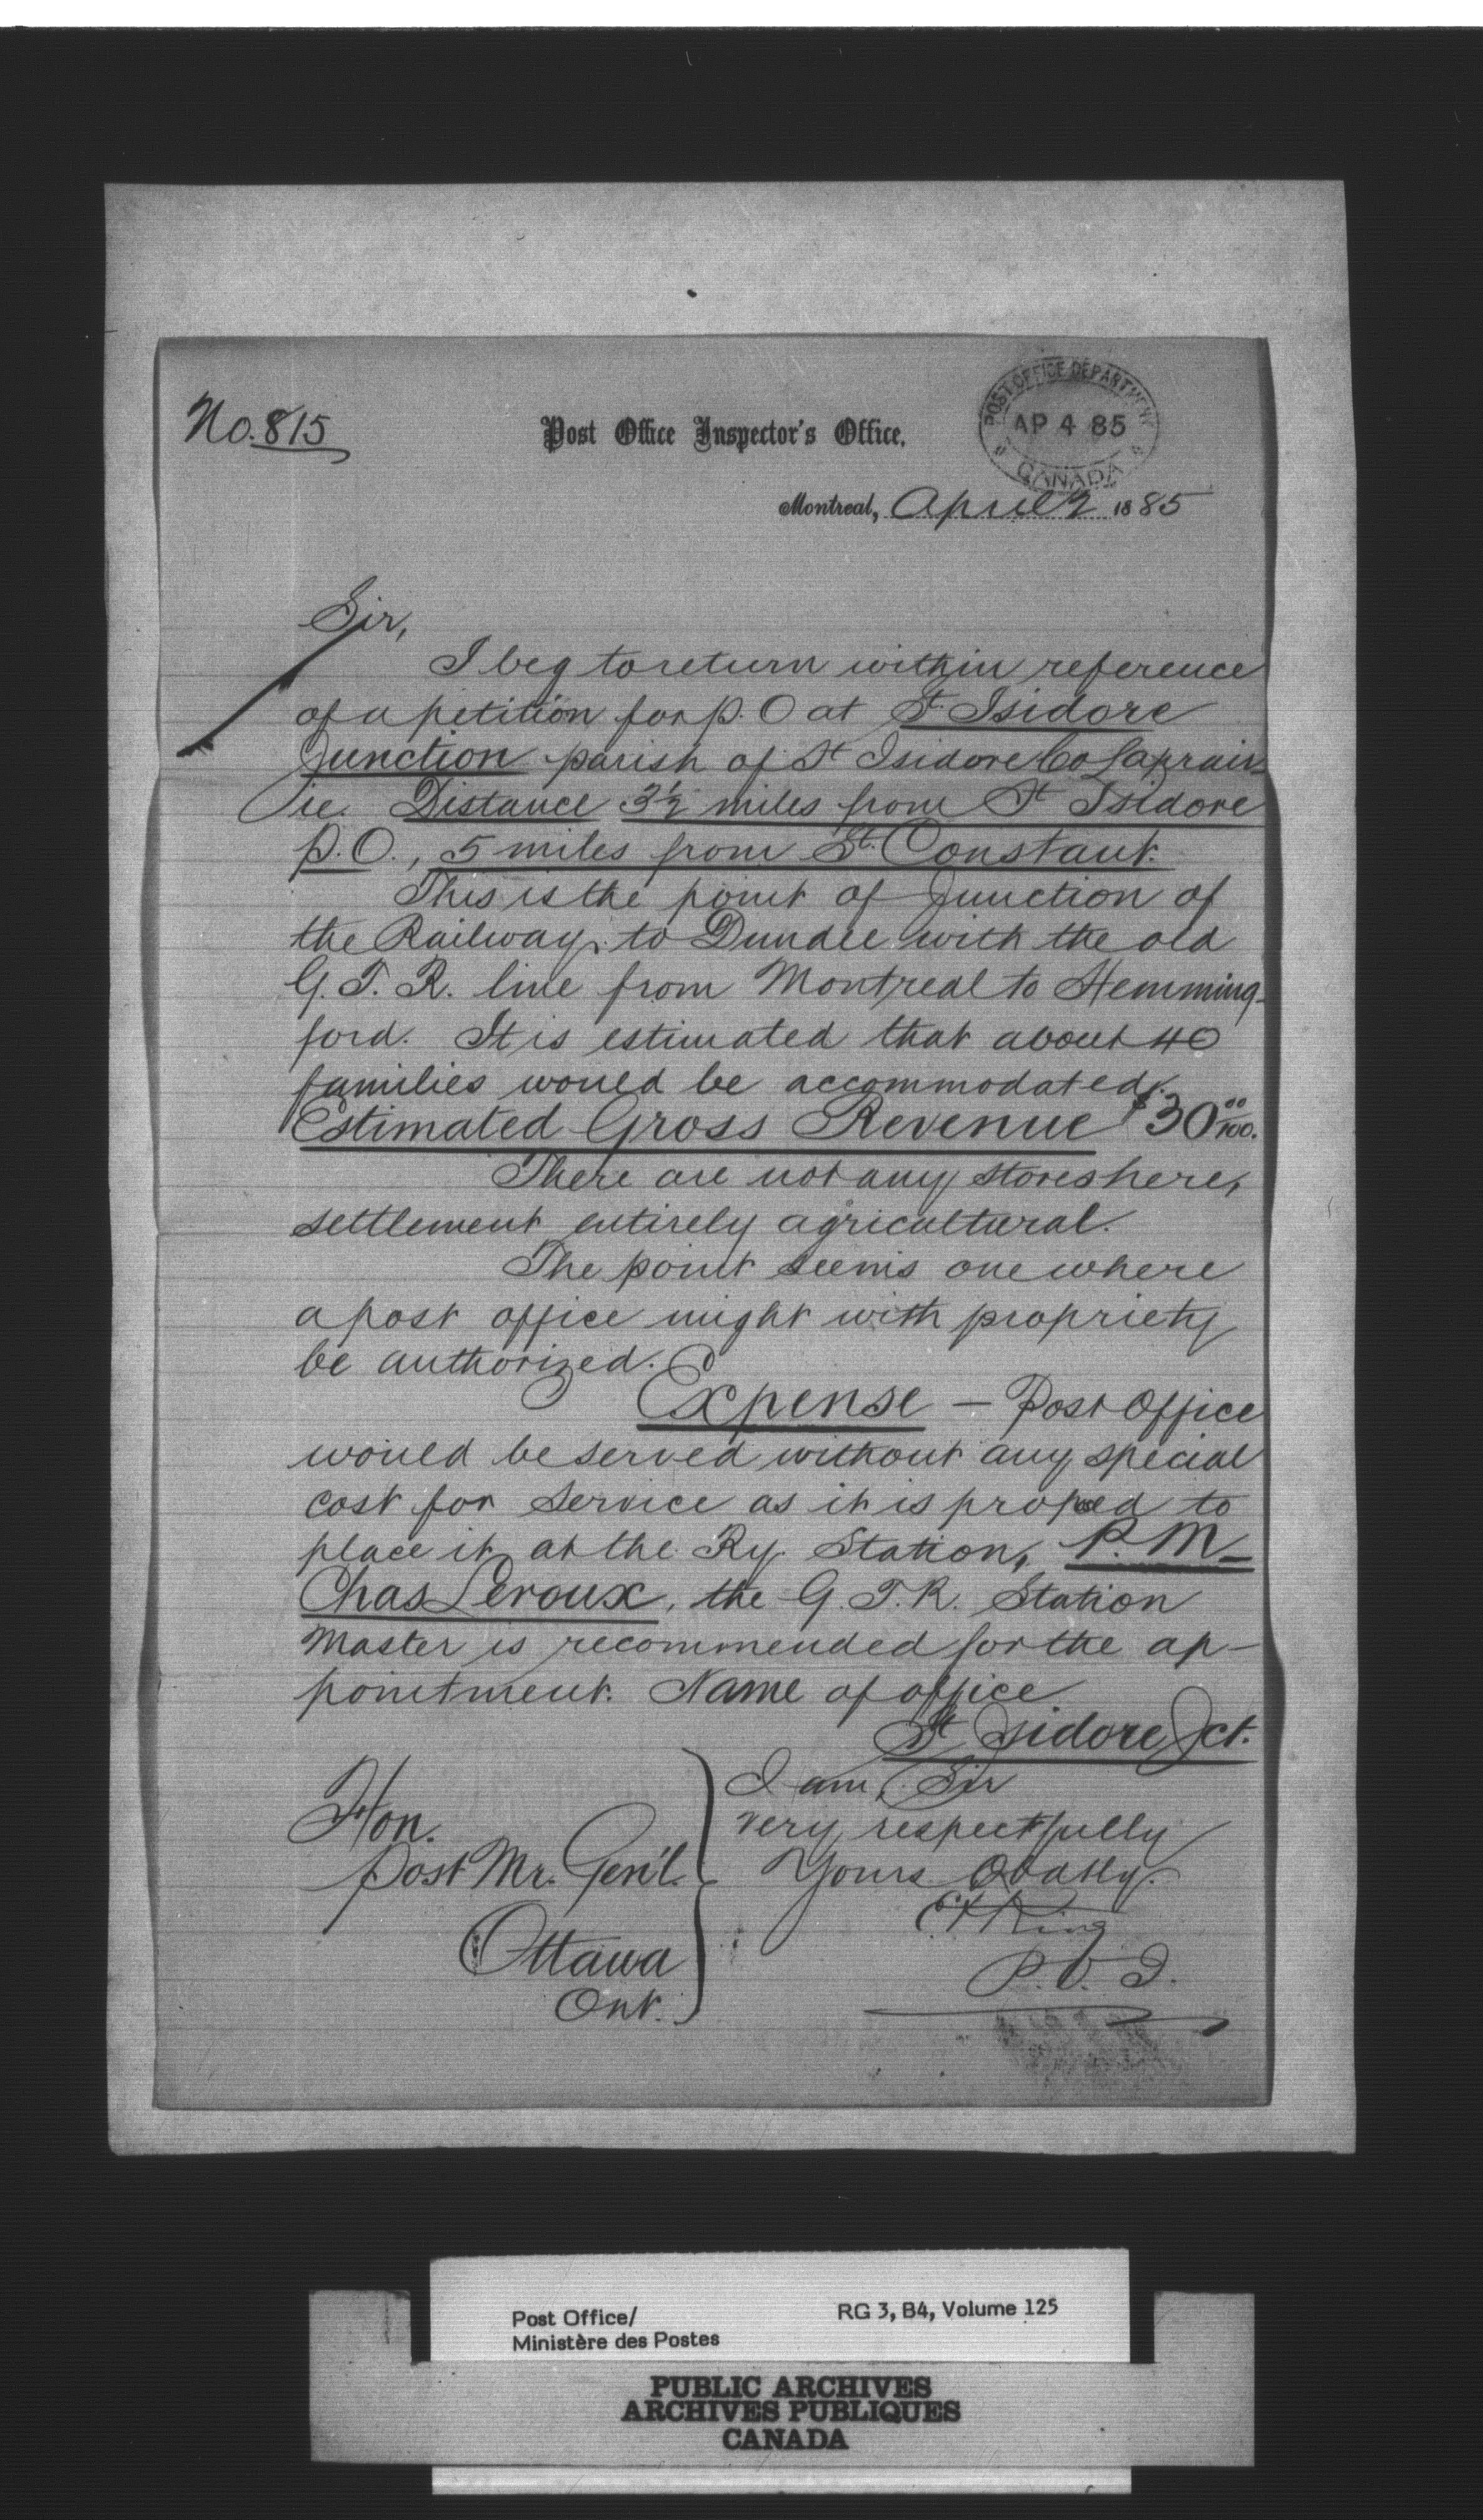 No. 815
Post Office Inspector's Office.
POST OFFICE DEPARTMENT
AP 4 85
CANADA
Montreal, April 2 1885
Sir,
I beg to return within reference
of a petition for p. O at St Isidore
Junction parish of St Isidore Co Laprair-
ie. Distance 3½ miles from St Isidore
p. O., 5 miles from St. Constant.
This is the point of Junction of
the Railway to Dundee with the old
G. T. R. line from Montreal to Hemming-
ford. It is estimated that about 40
families would be accommodated.
Estimated Gross Revenue $30 00/100.
There are not any stores here,
settlement entirely agricultural.
The point seems one where
a post office might with propriety
be authorized.
Expense – Post Office
would be served without any special
cost for service as it is proposed to
place it at the Ry. Station, P. M–
Chas Leroux, the G. T. R. Station
Master is recommended for the ap-
pointment. Name of office
St Isidore Jct.
I am, Sir
very respectfully
Yours Obdtly.
King
P. O. I.
Hon.
Post Mr. Gen'l.
Ottawa
Ont.
Post Office/
Ministère des Postes
RG 3, B4, Volume 125
PUBLIC ARCHIVES
ARCHIVES PUBLIQUES
CANADA